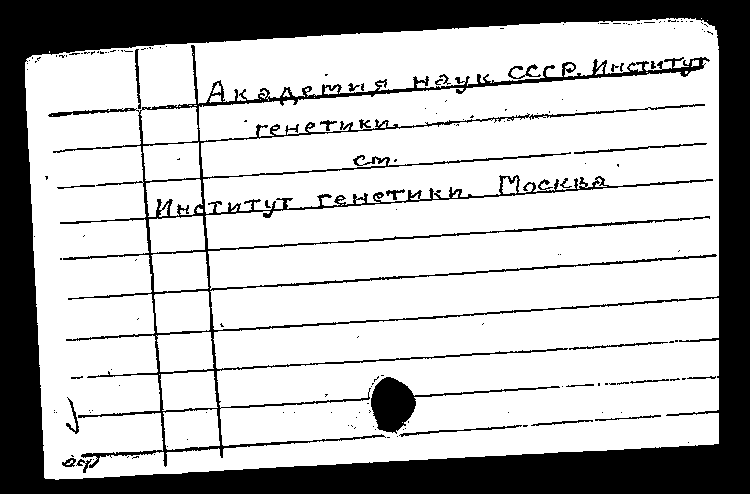 Академия наук СССР. Институт
генетики.
ст.
Институт генетики. Москва